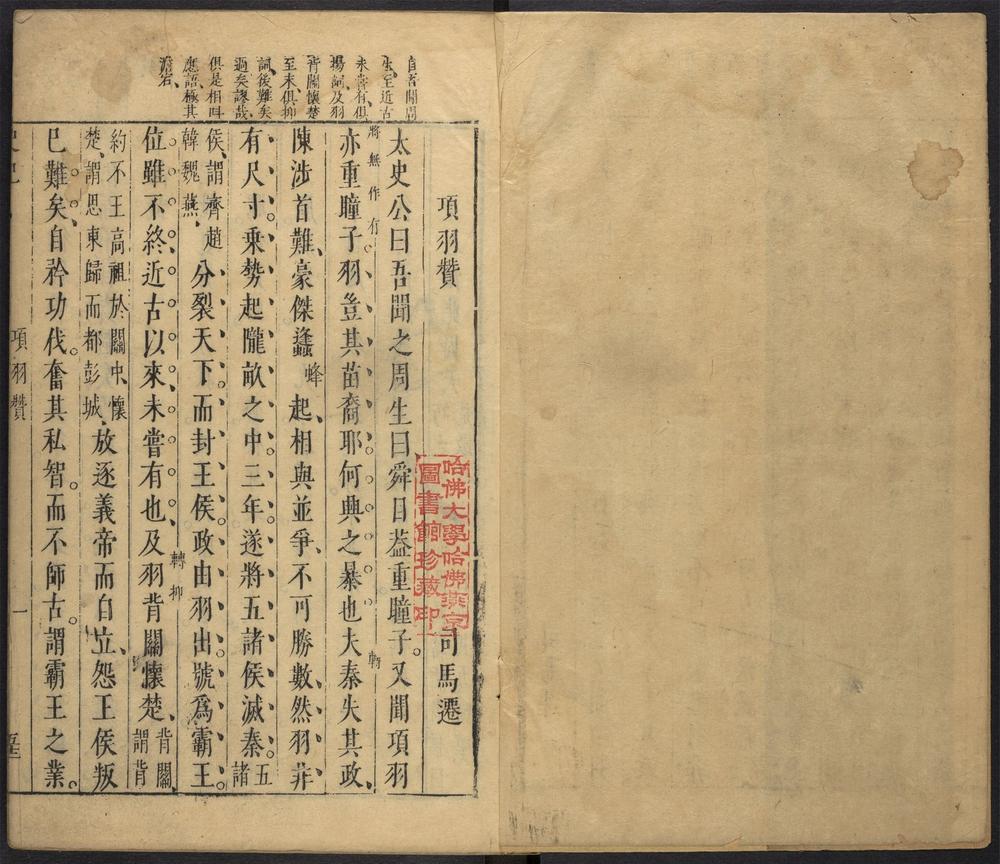 自吾聞周
生至近古
未嘗有俱
揚詞及羽
背關懷楚
至末俱抑
詞後難矣
過矣謬哉
俱是相呌
應語極其
澹宕
項羽贊
司馬遷
太史公曰吾聞之周生曰舜目葢重瞳子又聞項羽
將無作有
亦重瞳子羽豈其苗裔耶何興之暴也夫秦失其政
陳涉首難豪傑蠭蜂起相與並爭不可勝數然羽非
有尺寸乗勢起隴畝之中三年遂將五諸侯滅秦五諸
侯謂齊趙韓魏燕分裂天下而封王侯政由羽出號爲霸王
位雖不終近古以來未嘗有也及羽背關懷楚背關謂背
轉抑
約不王高祖於關中懷楚謂思東歸而都彭城放逐義帝而自立怨王侯叛
已難矣自矜功伐奮其私智而不師古謂霸王之業
項羽贊
一
哈佛大學哈佛燕京
圖書館珍藏印